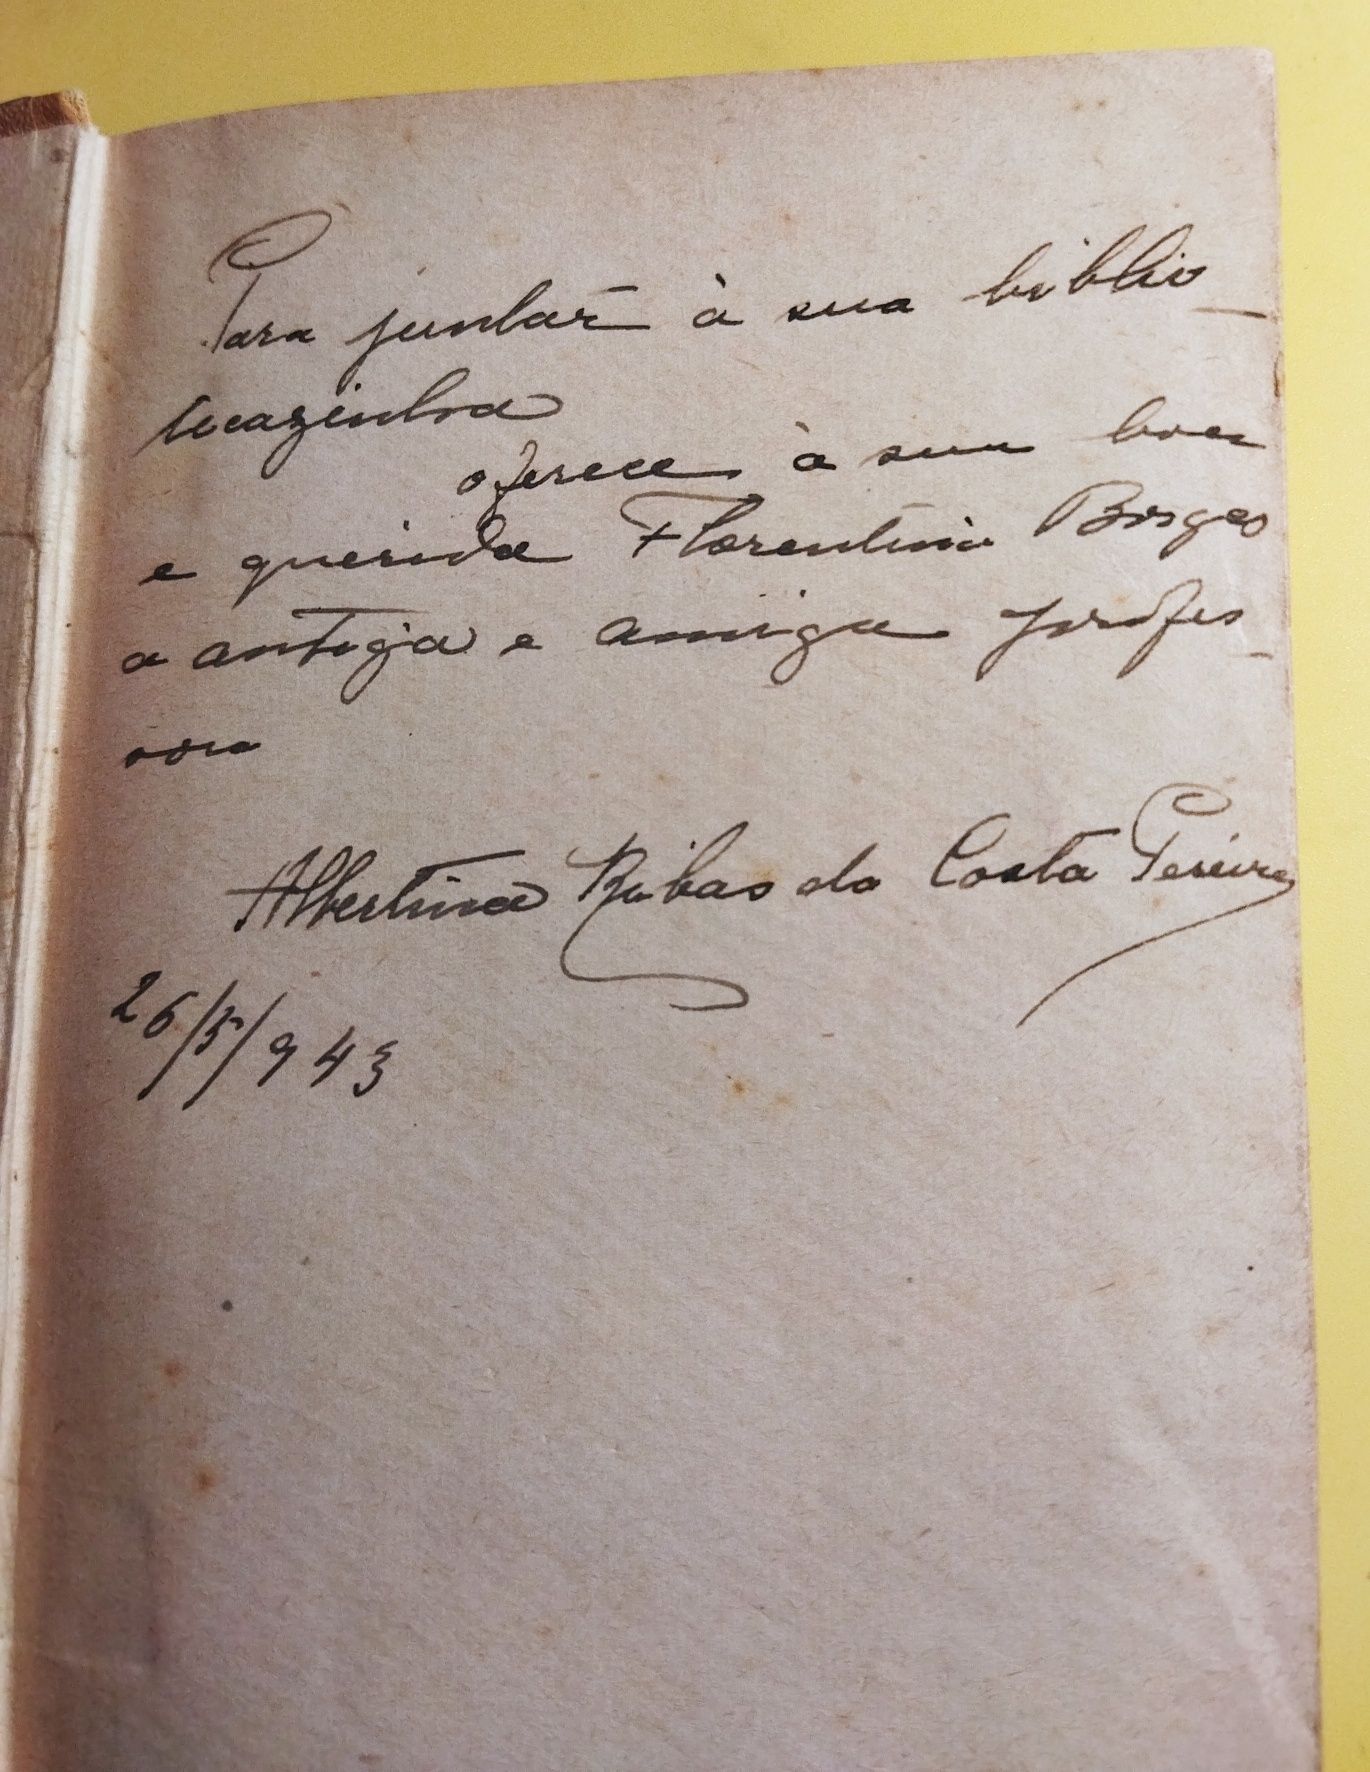 Para juntar à sua biblio-
tecazinha
oferece à sua boa
e querida Florentina Borges
a antiga e amiga profes-
sora
Albertina Ribas da Costa Pereira
26/5/943